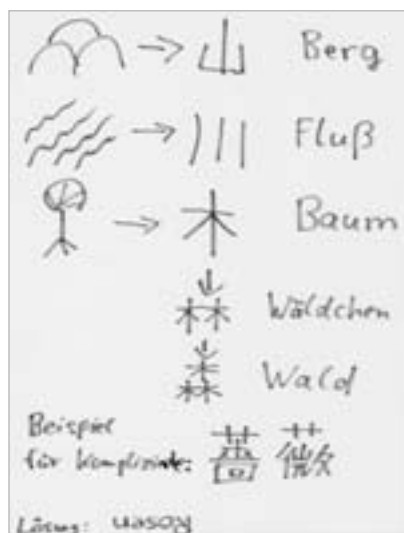 山 Berg
川 Fluß
木 Baum
林 Wäldchen
森 Wald
Beispiel
für komplizierte: 薔薇
Lösung: Rosen